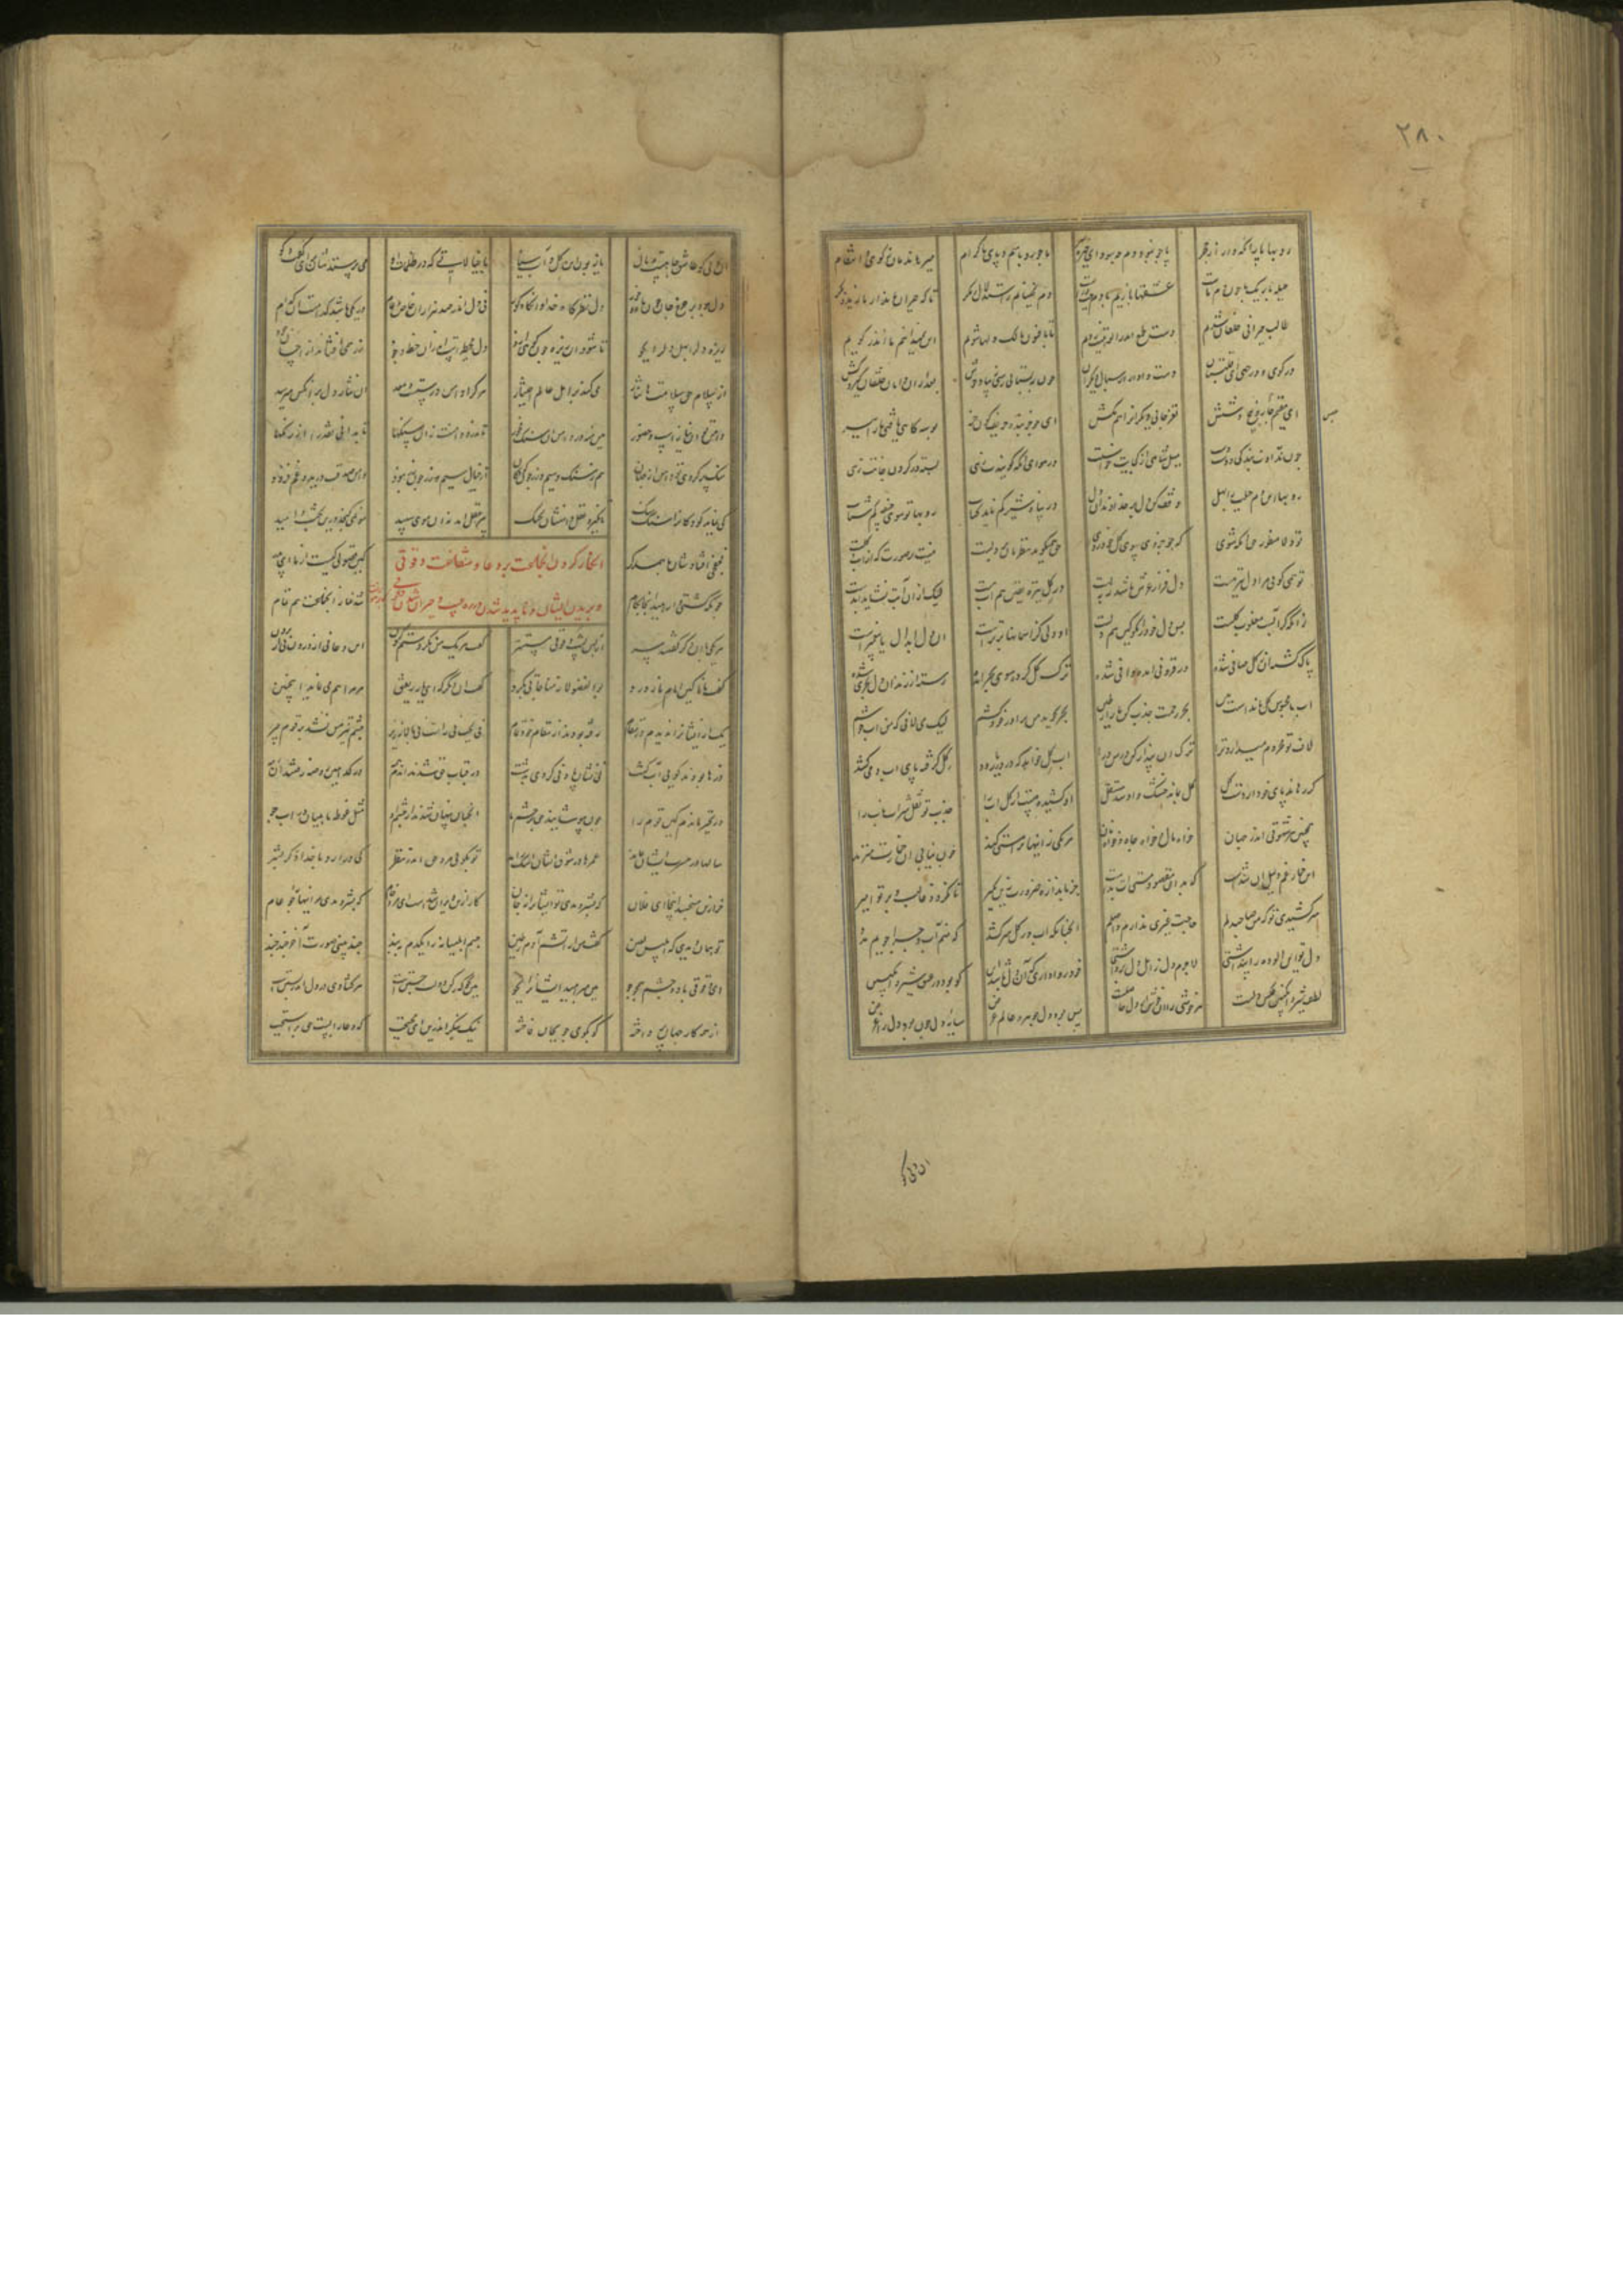 ۲۸۰
روبها پا را نگه دار از پا چو نبود دم چه سود ای خیره ما چو روباهیم و پای ما کرام میرهاندمان انتقام
حیله باریک ما چون دم ماست عشقها بازیم با دم چپ و راست دم بجنبانیم ز استدلال و مکر تا که حیران ماند از ما زید و بکر
طالب حیرانی خلقان شدیم دست طمع اندر الوهیت زدیم تا بافسون مالک دلها شویم این نمی بینیم ما کاندر کویم
در کوی و در چهی ای قلتبان دست وادار از سبال دیکران چون ببستانی رسی زیبا و خوش بعد از ان دامان خلقان کیر و کش
ای مقیم چار و پنج و شش نغز جایی دیکرانرا هم بکش ای چو خربنده حریف کون خر بوسه کاهی یافتی ما را ببر
حبس
چون ندادت بندکی دوست دست میل شاهی از کجایت خاستست در هوای انکه کویندت زهی بسته در کردن جانت زهی
روبها این دم حیلت را بهل وقف کن دل بر خداوندان دل در پناه شیر کم ناید کباب روبها تو سوی جیفه کم شتاب
تو دلا منظور حق انکه شوی که چو جزوی سوی کل خود روی حق همی کوید نظرمان بر دلست نیست بر صورت که آن آب و کلست
تو همی کویی مرا دل نیز هست دل فراز عرش باشد نی بپست در کل تیره یقین هم آب هست لیک از ان آبت نشاید آبدست
زانکه کر آبست مغلوب کلست پس دل خود را مکو کین هم دلست ان دلی کز اسمانها برترست آن دل ابدال یا پیغمبرست
پاک کشته ان ز کل صافی شده در فزونی آمده وافی شده ترک کل کرده سوی بحر آمده رسته از زندان کل بحری شده
آب ما محبوس کل ماندست هین بحر رحمت جذب کن ما را ز طین بحر کوید من ترا در خود کشم لیک می لافی که من آب خوشم
لاف تو محروم میدارد ترا ترک آن پندار کن در من درآ آب کل خواهد که در دریا رود کل کرفته پای اب و می کشد
کر رهاند پای خود از دست کل کل بماند خشک و او شد مستقل ان کشیدن چیست از کل آب را جذب تو نقل و شراب ناب را
همچنین هر شهوتی اندر جهان خواه مال و خواه جاه و خواه نان هر یکی زینها ترا مستی کند چون نیابی ان خمارت میزند
این خمار غم دلیل ان شدست که بدان مقصود مستی ات بدست جز باندازه ضرورت زین مکیر تا نکردد غالب و بر تو امیر
سر کشیدی تو که من صاحب دلم حاجت غیری ندارم واصلم آنچنانکه اب در کل سر کشد که منم آب و چرا جویم مدد
دل تو این الوده را پنداشتی لاجرم دل ز اهل دل برداشتی خود روا داری که آن دل باشد این کو بود در عشق شیر و انکبین
لطف شیر و انکبین عکس دلست هر خوشی را ان خوش از دل حاصلست پس بود دل جوهر و عالم عرض سایه دل چون بود دل را غرض
ان دلی کو عاشق مالست و جاه یا زبون این کل و آب سیاه یا خیالاتی که در ظلمات او می پرستدشان برای کفت و کو
دل نظرکاه خدا وانکاه کور نی دل اندر صد هزاران خاص و عام در یکی باشد کدامست ان کدام
ریزه دل را بهل دل را بجو تا شود ان ریزه چون کوهی ازو دل محیطست اندران خطه وجود زر همی افشاند از احسان و جود
از سلام حق سلامتها نثار می کند بر اهل عالم اختیار هر کرا دامن درستست و معد ان نثار دل بر آنکس میرسد
دامن تو ان نیازست و حضور هین منه در دامن ان سنک فجور تا ندرد دامنت زان سنکها تا بدانی نقد را از رنکها
سنک پر کردی تو دامن از جهان هم ز سنک و سیم و زر چون کودکان از خیال سیم و زر چون زر نبود دامن صدقت درید و غم فزود
کی نماید کودکانرا سنک سنک تا نکیرد عقل دامنشان بچنک پیر عقل آمد نه ان موی سپید مو نمی کنجد درین بخت و امید
انکار کردن انجماعت بر دعا و شفاعت دقوقی
و پریدن ایشان و ناپدید شدن در پرده غیب و حیران شدن دقوقی
چونکه کشتی ارهید انجا بکام شد نماز انجماعت هم تمام
هر یکی با ان دکر کفتند سر از پس پشت دقوقی مستتر کفت هر یک من نکردستم کنون این دعا نی از درون نی از برون
کفت مانا کین امام ما ز درد بوالفضولانه مناجاتی بکرد کفت ان دیکر که ای یار یقین مر مرا هم می نماید اینچنین
یک از ایشانرا ندیدم در مقام رفته بودند از مقام خود تمام نی بچپ نی راست نی بالا نه زیر چشم تیز من نشد بر قوم چیر
درها بودند کویی آب کشت نی نشان پا و نی کردی بدشت در قباب حق شدند اندم همه در کدامین روضه رفتند ان رمه
در تحیر ماندم کین قوم را چون بپوشانید حق بر چشم ما آنچنان پنهان شدند از چشم او مثل غوطه ماهیان در آب جو
سالها در حسرت ایشان بماند عمرها در شوق ایشان اشک راند تو بکویی مرد حق اندر نظر کی درارد با خدا ذکر بشر
خر ازین می خسبد اینجا ای فلان که بشر دیدی تو ایشانرا نه جان کار ازین ویران شدست ای مرد خام که بشر دیدی مر اینها را چو عام
تو همان دیدی که ابلیس لعین کفت من از آتشم آدم ز طین چشم ابلیسانه را یکدم ببند چند بینی صورت آخر چند چند
ای دقوقی با دو چشم همچو جو هین مبر امید ایشانرا بجو هین بجو که رکن دولت جستنست هر کشادی در دل اندر بستنست
از همه کار جهان پرداخته کو و کو میکو بجان چون فاخته نیک بنکر اندرین ای محتجب که دعا را بست حق بر استجب